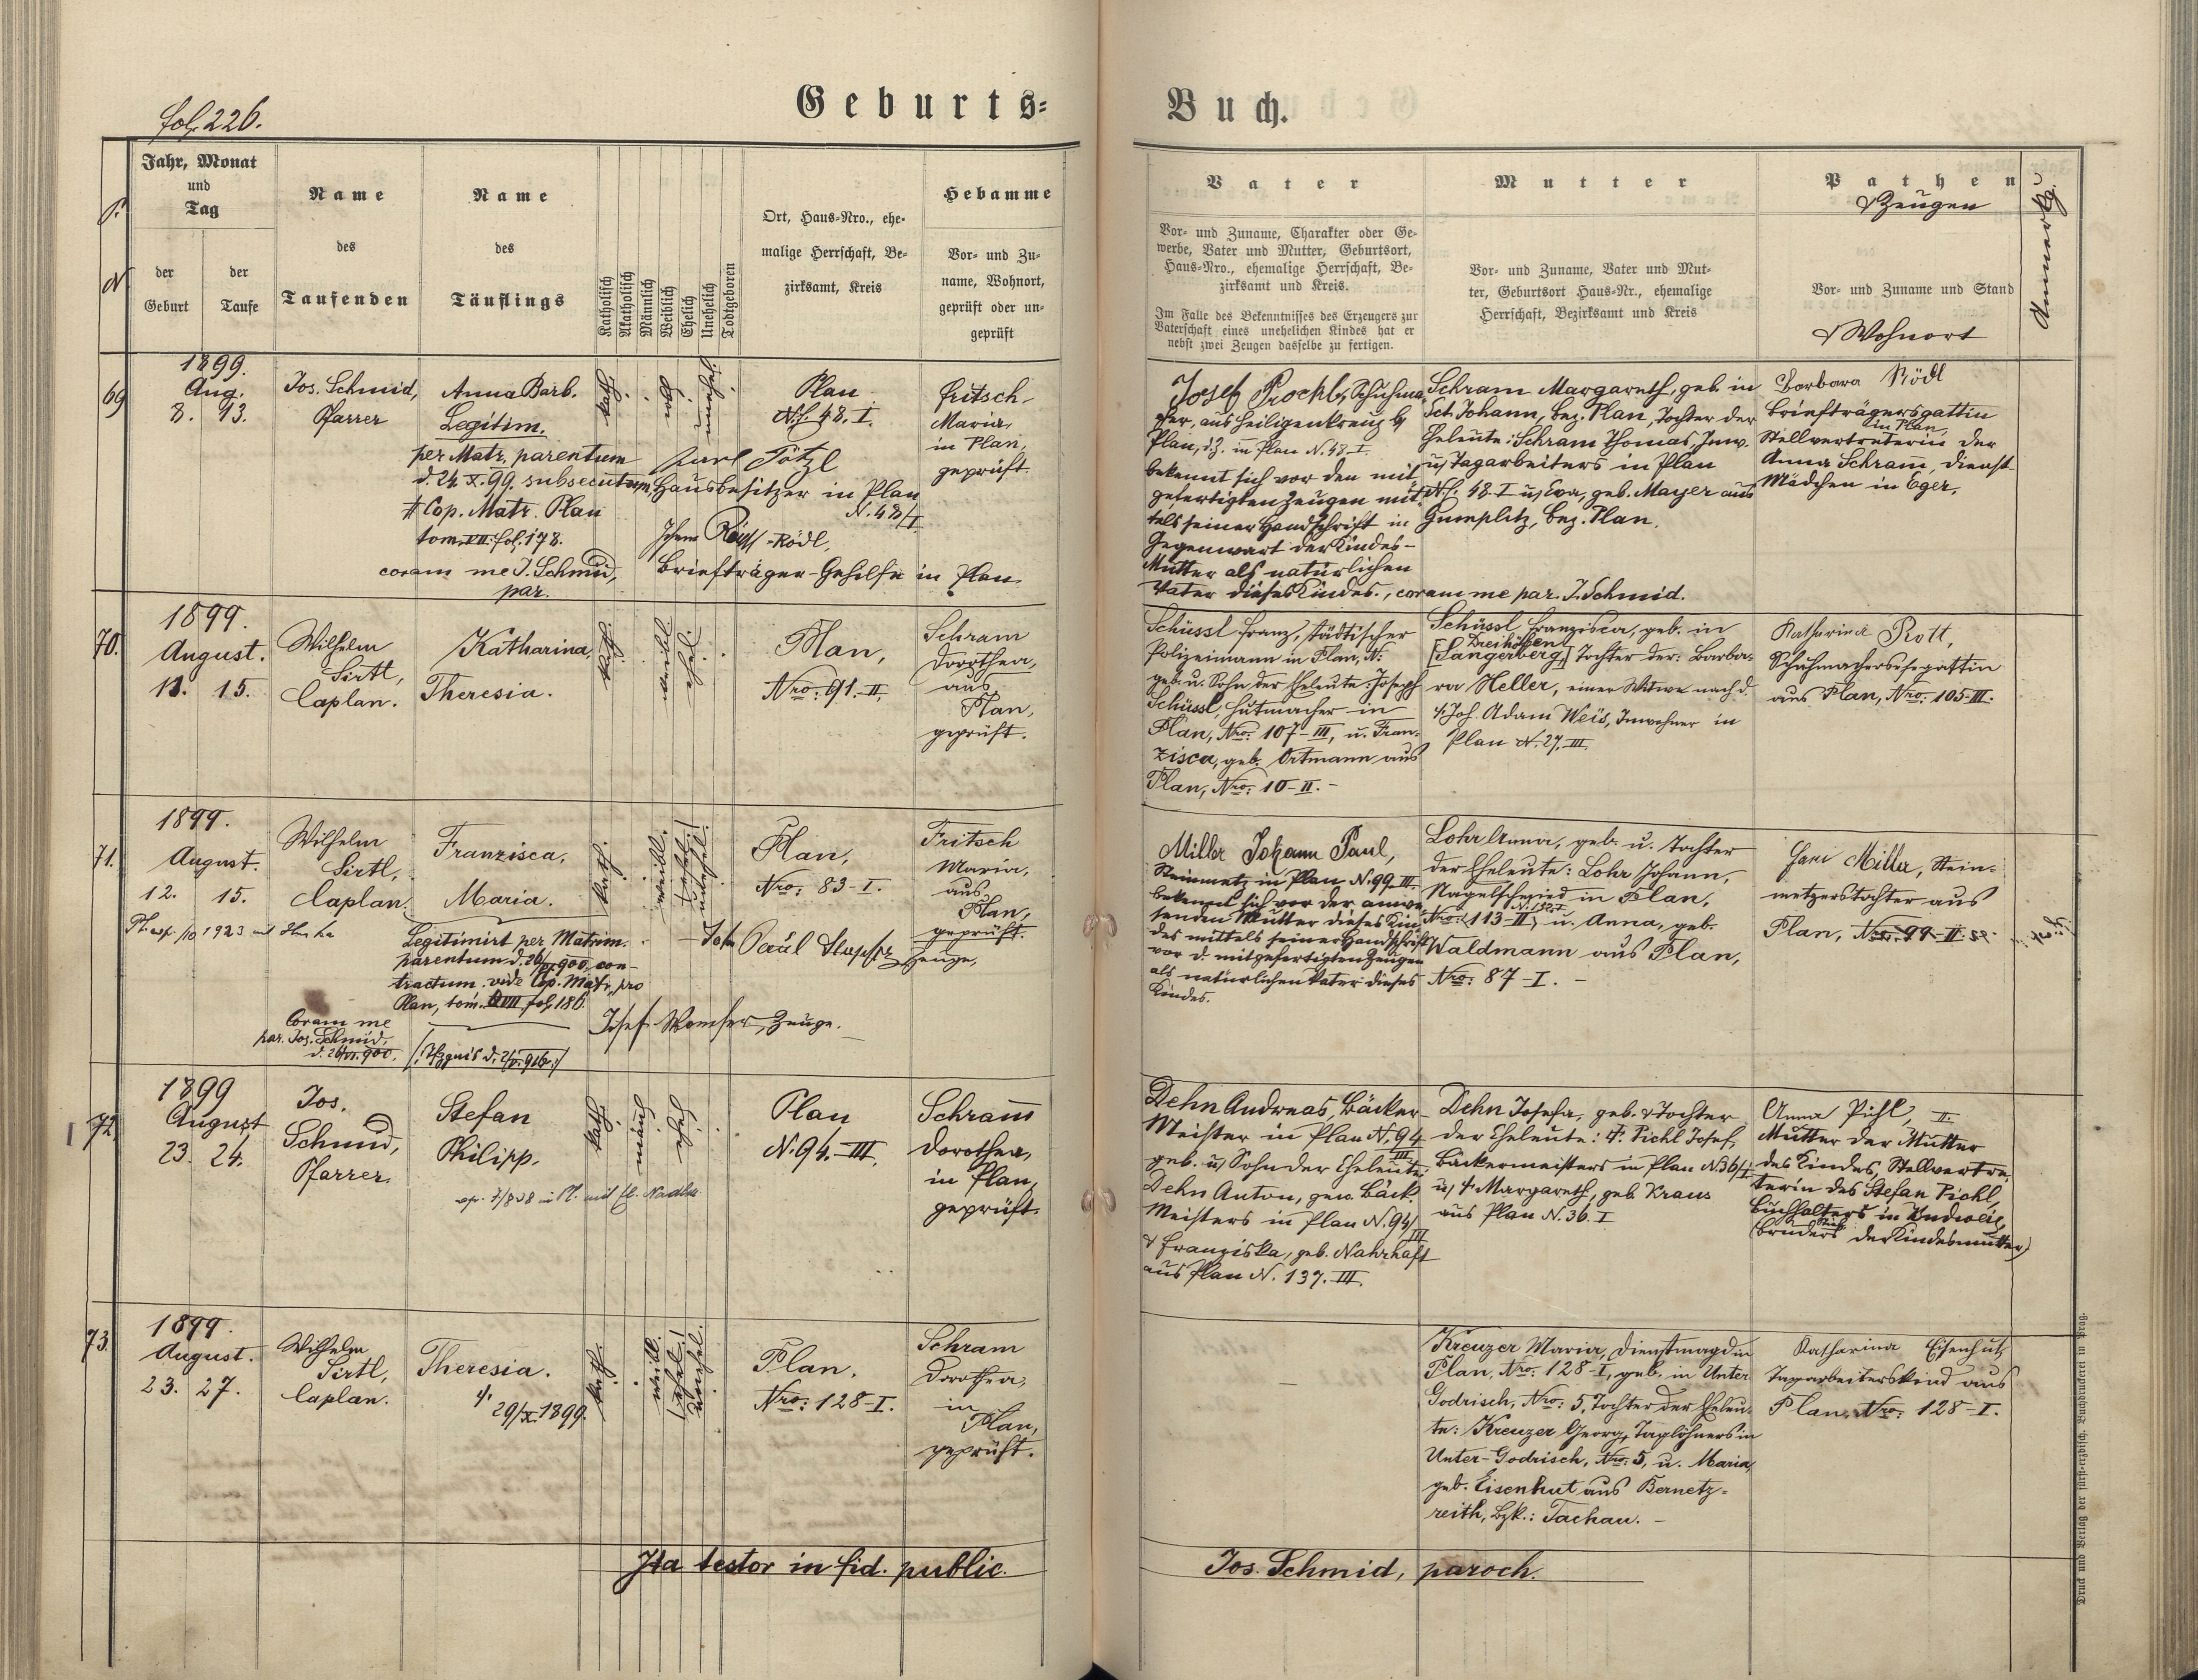 fol. 226.
Geburts-
Buch.
P. N
Jahr, Monat
und
Tag
der
Geburt
der
Taufe
Name
des
Taufenden
Name
des
Täuflings
Katholisch
Akatholisch
Männlich
Weiblich
Ehelich
Unehelich
Todtgeboren
Ort, Haus-Nro., ehe-
malige Herrschaft, Be-
zirksamt, Kreis
Hebamme
Vor- und Zu-
name, Wohnort,
geprüft oder un-
geprüft
Vater
Vor- und Zuname, Charakter oder Ge-
werbe, Vater und Mutter, Geburtsort,
Haus-Nro., ehemalige Herrschaft, Be-
zirksamt und Kreis.
Im Falle des Bekenntnisses des Erzeugers zur
Vaterschaft eines unehelichen Kindes hat er
nebst zwei Zeugen dasselbe zu fertigen.
Mutter
Vor- und Zuname, Vater und Mut-
ter, Geburtsort Haus-Nr., ehemalige
Herrschaft, Bezirksamt und Kreis
Pathen
& Zeugen
Vor- und Zuname und Stand
& Wohnort
Anmerkg.
69
1899.
Aug.
8. 13.
Jos. Schmid,
Pfarrer
Anna Barb.
Legitim.
per Matr. parentum
d. 24. X. 99. subsecutum,
Cop. Matr. Plan
tom. VII. fol. 178.
coram me J. Schmid,
par.
kath.
Plan
N. 48. I.
Karl Tötzl
Hausbesitzer in Plan
N. 48/I
Rödl,
Briefträger-Gehilfe in Plan
Fritsch
Maria,
in Plan,
geprüft.
Josef Prockl, Schuhma-
cher, aus Heiligenkreuz b/
Plan, d.z. in Plan N. 48-I.
bekennt sich vor den mit-
gefertigten Zeugen mit-
tels seiner Handschrift in
Gegenwart der Kindes-
Mutter als natürlichen
Vater dieses Kindes., coram me par. J. Schmid.
Schram Margareth, geb. in
Sct. Johann, bez. Plan, Tochter der
Eheleute: Schram Thomas, Inw.
u/ Tagarbeiters in Plan
N. 48. I u/ Eva, geb. Mayer aus
Gumplitz, bez. Plan.
Barbara Rödl
Briefträgersgattin
in Plan,
Stellvertreterin der
Anna Schram, Dienst-
Mädchen in Eger.
70.
1899.
August.
11. 15.
Wilhelm
Sirtl,
Caplan.
Katharina,
Theresia.
kath.
weibl.
ehel.
Plan,
Nro: 91.-II.
Schram
Dorothea,
aus
Plan,
geprüft.
Schüssl Franz, städtischer
Polizeimann in Plan, N:
geb. u. Sohn der Eheleute: Joseph
Schüssl, Hutmacher in
Plan, Nro: 107-III, u. Fran-
zisca, geb. Ortmann aus
Plan, Nro: 10-II. -
Schüssl Franzisca, geb. in
Dreihöffen
[Sangerberg,] Tochter der: Barba-
ra Heller, einer Witwe nach d.
Joh. Adam Weis, Inwohner in
Plan N. 27. III.
Katharina Rott,
Schuhmachersehegattin
aus Plan, Nro: 105-III.
71.
1899.
August.
12. 15.
Wilhelm
Sirtl,
Caplan.
Franzisca,
Maria.
Legitimirt per Matrim.
parentum d. 26/VI. 900, con-
tractum. vide Cop. Matr. pro
Plan, tom. VII fol. 186.
Coram me
par. Jos. Schmid,
d. 26/VI. 900.
kath.
weibl.
Plan,
Nro: 83-I.
Zeuge,
Josef Zeuge.
Fritsch
Maria,
aus
Plan,
geprüft.
Miller Johann Paul,
Steinmetz in Plan N. 99. III.
bekennt sich vor der anwe-
senden Mutter dieses Kin-
des mittels seiner Handschrift
vor d. mitgefertigten Zeugen
als natürlichen Vater dieses
Kindes.
Lohr Anna, geb. u. Tochter
der Eheleute: Lohr Johann,
Nagelschmied in Plan,
Nro: 113-II, u. Anna, geb.
Waldmann aus Plan,
Nro: 87-I. -
Miller, Stein-
metzerstochter aus
Plan, Nro: 99-II.
72.
1899
August
23. 24.
Jos.
Schmid,
Pfarrer.
Stefan
Philipp.
kath.
männl.
ehel.
Plan
N. 94.-III.
Schram
Dorothea,
in Plan,
geprüft.
Dehn Andreas, Bäcker-
Meister in Plan N. 94
III
geb. u/ Sohn der Eheleute:
Dehn Anton, gew. Bäck.
Meisters in Plan N. 94/
III
& Franziska, geb. Nahrhaft
aus Plan N. 137. III.
Dehn Josefa, geb. & Tochter
der Eheleute: Pichl Josef,
Bäckermeisters in Plan N. 36/I
u/ Margareth, geb. Kraus
aus Plan N. 36. I
Anna Pichl,
Mutter der Mutter
des Kindes, Stellvertre-
terin des Stefan Pichl,
Buchhalters in Budweis,
(Bruders der Kindesmutter)
73.
1899.
August.
23. 27.
Wilhelm
Sirtl,
Caplan.
Theresia.
29/X. 1899.
kath.
weibl.
unehel.
Plan.
Nro: 128-I.
Schram
Dorothea,
in
Plan,
geprüft.
—
Kreuzer Maria, Dienstmagd in
Plan, Nro: 128-I, geb. in Unter
Godrisch, Nro: 5, Tochter der Eheleu-
te: Kreuzer Georg, Taglöhners in
Unter-Godrisch, Nro: 5, u. Maria,
geb. Eisenhut aus Bernetz-
reith, Bzk.: Tachau. -
Katharina Eisenhut,
Tagarbeiterskind aus
Plan, Nro: 128-I.
Ita testor in fid. public.
Jos. Schmid, paroch.
Druck und Verlag der fürst-erzbisch. Buchdruckerei in Prag.